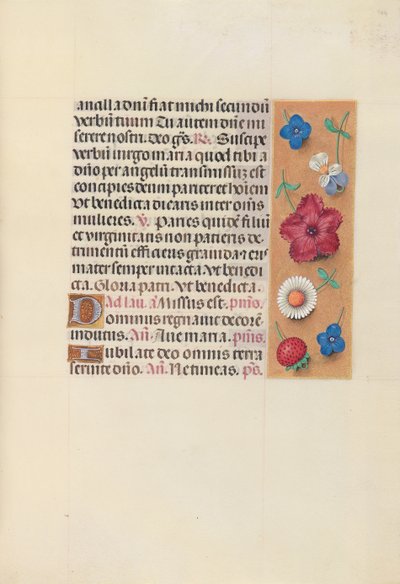 ancilla dñi fiat michi secundũ
verbũ tuum Tu autem dñe mi
serere nostri. deo grs. R. Suscipe
verbũ virgo maria quod tibi a
dño per angelũ transmissuz est
concipies deum paries et hoiem
Vt benedicta dicaris inter oms
mulieres. V. Paries quidẽ filiũ
et virginitatis non pacieris de
trimentũ efficieris grauida et eris
mater semper intacta Vt benedi
cta. Gloria patri. Vt benedicta.
Ad lau. Añ. Missus est. psm̃s.
Dominus regnauit decorẽ
indutus. Añ. Aue maria. psm̃s.
Iubilate deo omnis terra
seruite dño. Añ. Ne timeas. ps̃.